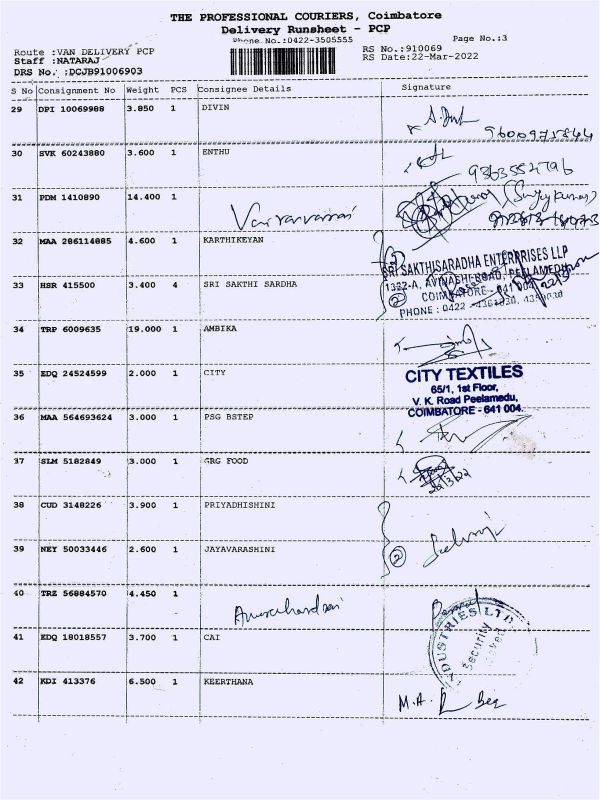 THE PROFESSIONAL COURIERS, Coimbatore
Delivery Runsheet - PCP
Phone No.:0422-3505555
Page No.:3
Route :VAN DELIVERY PCP
RS No.:910069
Staff :NATARAJ
RS Date:22-Mar-2022
DRS No. :DCJB91006903
S No Consignment No Weight PCS Consignee Details Signature
29 DPI 10069988 3.850 1 DIVIN
30 SVK 60243880 3.600 1 ENTHU
9363554796
31 PDM 1410890 14.400 1
32 MAA 286114885 4.600 1 KARTHIKEYAN
SRI SAKTHISARADHA ENTERPRISES LLP
33 HSR 415500 3.400 4 SRI SAKTHI SARDHA
1322-A, AVINASHI ROAD, PEELAMEDU
COIMBATORE - 641 004
PHONE : 0422
2
34 TRP 6009635 19.000 1 AMBIKA
35 EDQ 24524599 2.000 1 CITY
CITY TEXTILES
65/1, 1st Floor,
V. K. Road Peelamedu,
COIMBATORE - 641 004.
36 MAA 564693624 3.000 1 PSG BSTEP
37 SLM 5182849 3.000 1 GRG FOOD
22/3/22
38 CUD 3148226 3.900 1 PRIYADHISHINI
39 NEY 50033446 2.600 1 JAYAVARASHINI
2
40 TRZ 56884570 4.450 1
41 EDQ 18018557 3.700 1 CAI
INDUSTRIES LTD
Security
42 KDI 413376 6.500 1 KEERTHANA
M.A.